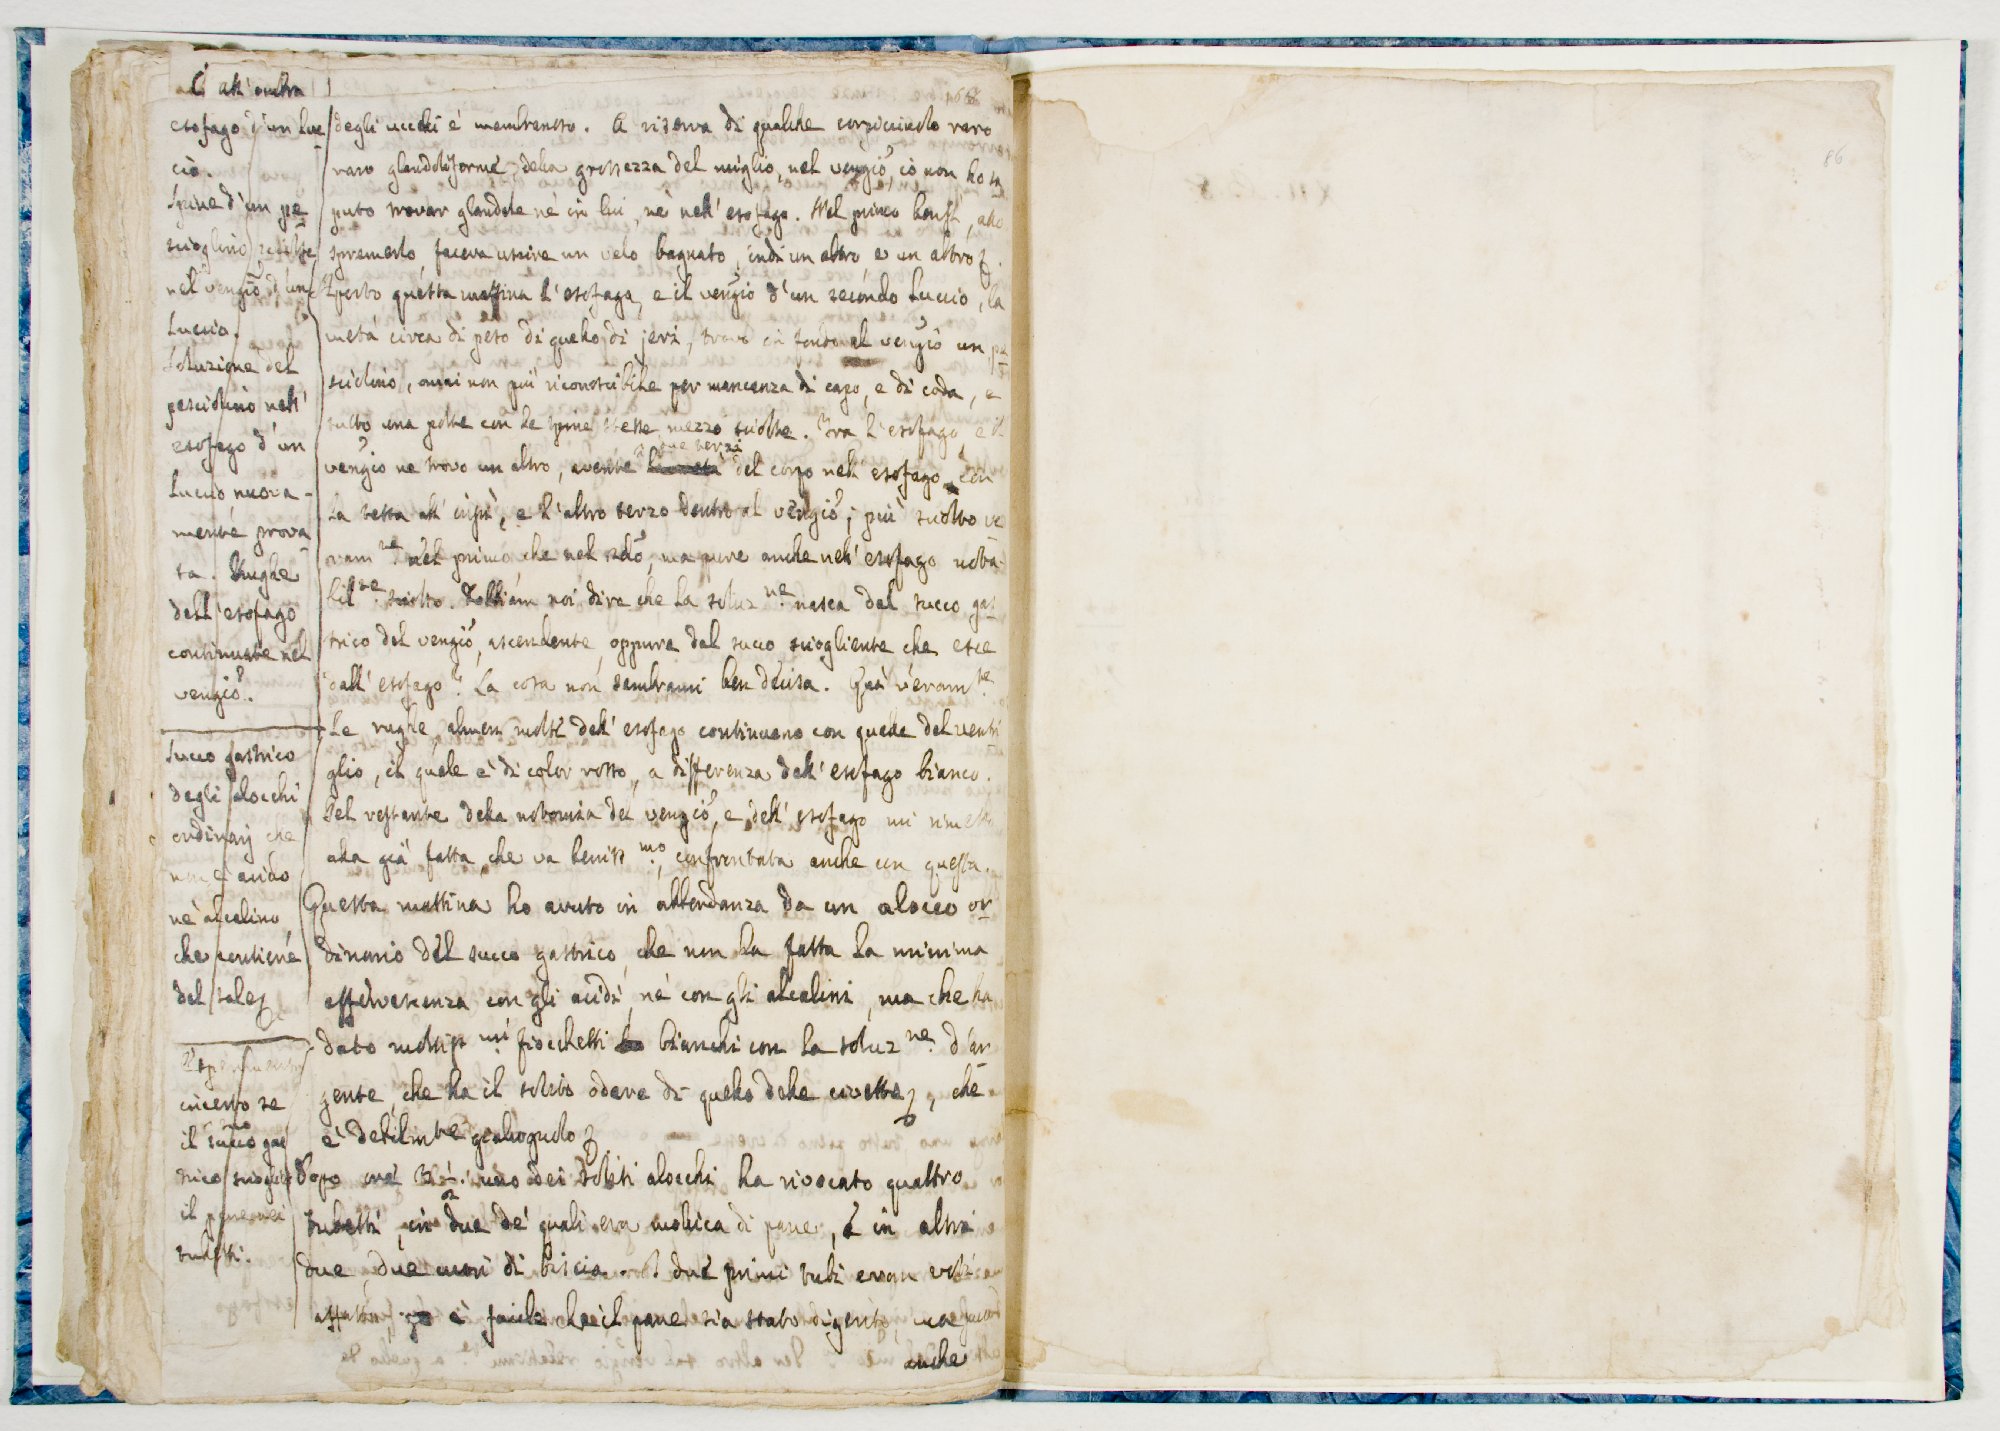 esofago d'un luc
cio.
Spine d'un pe
sciolino sciolte
nel vengió d'un
Luccio.
Soluzione del
pesciolino nell'
esofago d'un
Luccio nuova-
mente prova
ta. Rughe
dell'esofago
continuate nel
vengió.
Succo gastrico
degli alocchi
ordinarj che
non è acido
nè alcalino,
che contiene
del sale
incerto se
il succo gas
trico scioglie
il pane nei
tubetti.
degli uccelli è membranoso. A riserva di qualche corpicciuolo raro
raro glanduliforme della grossezza del miglio, nel vengió, io non ho sa
puto trovar glandole nè in lui, nè nell'esofago. Nel primo bensì, allo
spremerlo, faceva uscire un velo bagnato, indi un altro, e un altro.
Aperto questa mattina l'esofago, e il vengió d'un secondo Luccio, la
metà circa di peso di quello di jeri, trovo in fondo al vengió un pe
sciolino, omai non più riconoscibile per mancanza di capo, e di coda, e
tutto una polte con le spine stesse mezzo sciolte. Tra l'esofago, e il
vengió ne trovo un altro, avente due terzi del corpo nell'esofago, con
la testa all'ingiù, e l'altro terzo dentro al vengió; più sciolto ve
ram.te nel primo che nel 2do, ma pure anche nell'esofago nota-
bil.te sciolto. Dobbiam noi dire che la soluz.ne nasca dal succo gas
trico del vengió, ascendente, oppure dal succo sciogliente che esce
dall'esofago? La cosa non sembrami ben decisa. Quì veram.te
le rughe, almen molte dell'esofago continuano con quelle del ventri
glio, il quale è di color rosso, a differenza dell'esofago bianco.
Del restante della notomia del vengió, e dell'esofago mi rimetto
alla già fatta, che va beniss.mo, confrontata anche con questa.
Questa mattina ho avuto in abbondanza da un alocco or
dinario del succo gastrico, che non ha fatta la minima
effervescenza con gli acidi, nè con gli alcalini, ma che ha
dato moltiss.mi fiocchetti bianchi con la soluz.ne d'ar
gento, che ha il solito odore di quello delle civette, che
è debilm.te giallognolo
Dopo ore uno dei soliti alocchi ha rivocato quattro
tubetti, in due de' quali era mollica di pane, e in altri
due, due cuori di biscia. I due primi tubi erano voti
affatto, è facile che il pane sia stato digerito, ma
anche
86